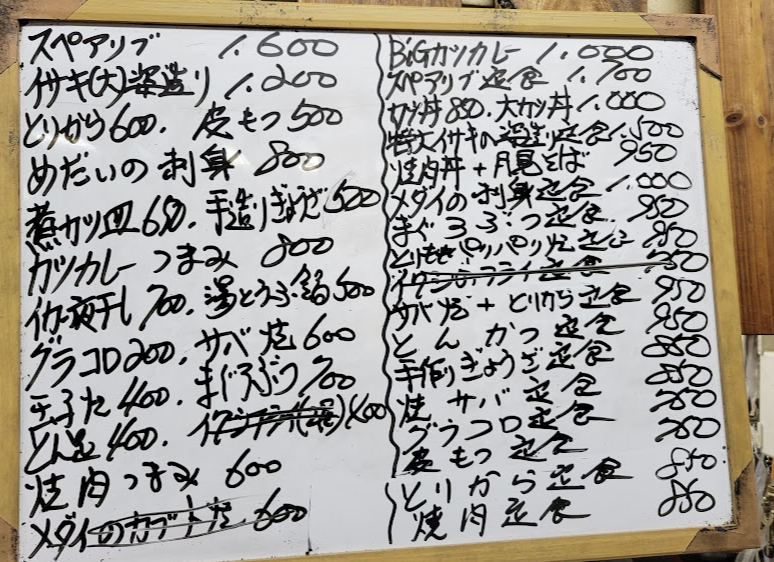 スペアリブ 1.600
イサキ(大)姿造り 1.200
とりから600. 皮もつ500
めだいの刺身 800
煮カツ皿650. 手造りぎょうざ500
カツカレーつまみ 800
イカ一夜干し700. 湯とうふ鍋500
グラコロ200. サバ焼600
玉子焼400. まぐろぶつ700
とん足400.
焼肉つまみ 600
メダイのカブト焼 600
BiGカツカレー 1.000
スペアリブ定食 1.700
カツ丼850. 大カツ丼 1.000
特大イサキの姿造り定食 1.500
焼肉丼+月見そば 950
メダイの刺身定食 1.000
まぐろぶつ定食 950
とりももパリパリ焼定食 850
フライ定食
サバ焼+とりから定食 950
とんかつ定食 950
手作りぎょうざ定食 850
焼サバ定食 850
グラコロ定食
皮もつ定食
とりから定食 850
焼肉定食 850